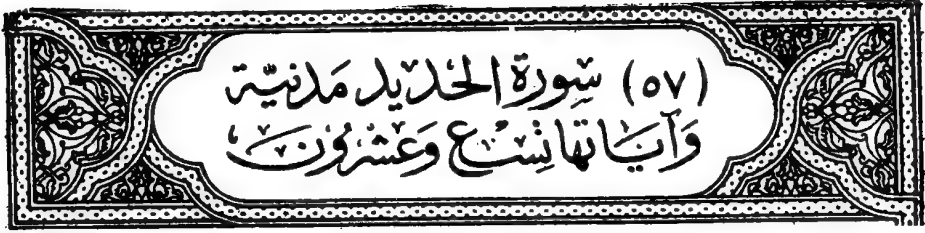 (٥٧) سِوُرَةِ الحَدِيد مَدَنيّة
وَآيَاتها تِسْع وَعشرُونَ